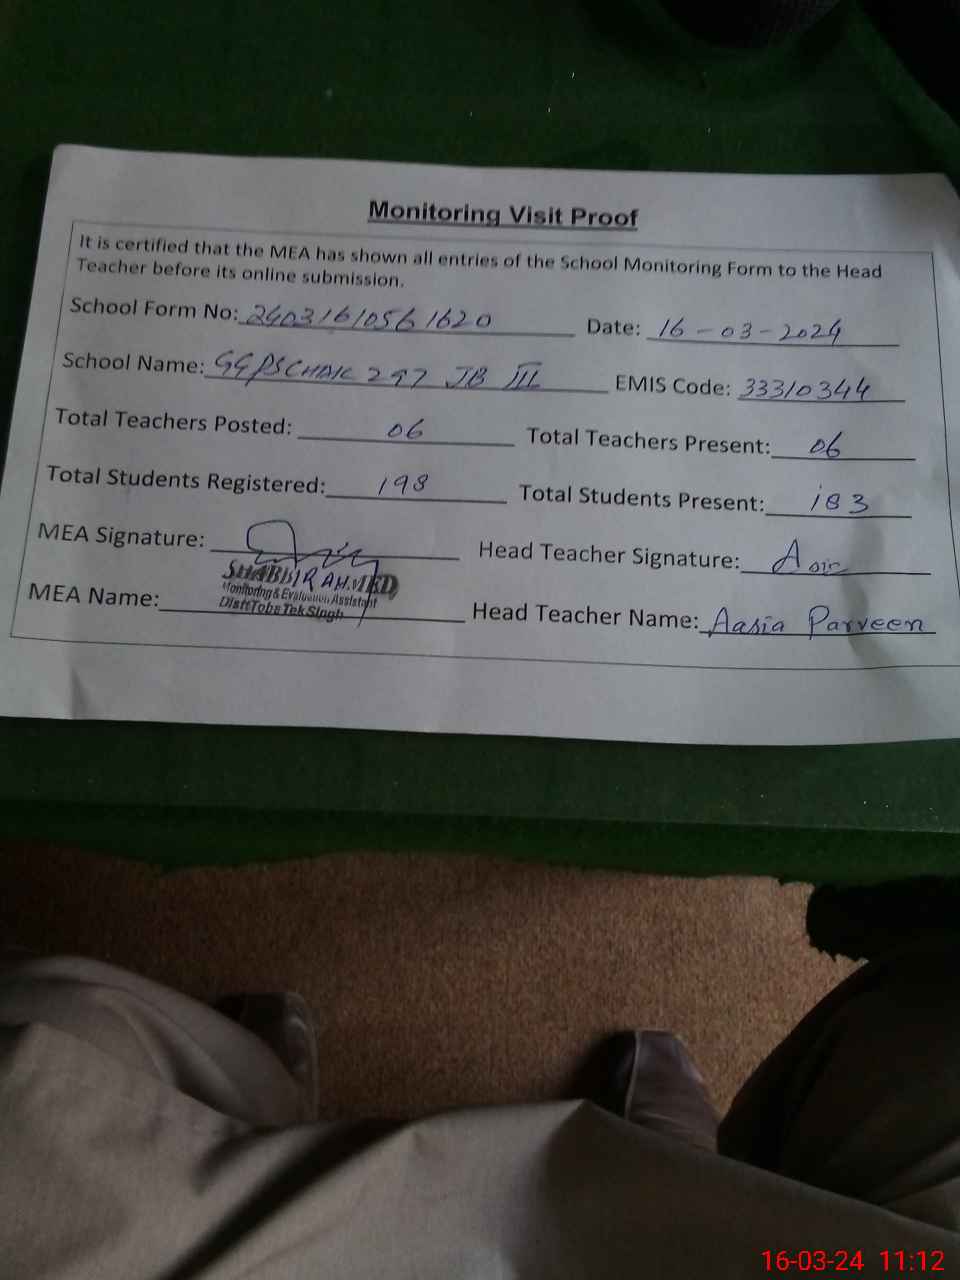 Monitoring Visit Proof
It is certified that the MEA has shown all entries of the School Monitoring Form to the Head
Teacher before its online submission.
School Form No: 24031610561620 Date: 16-03-2024
School Name: GGPS CHAK 297 JB III EMIS Code: 33310344
Total Teachers Posted: 06 Total Teachers Present: 06
Total Students Registered: 198 Total Students Present: 183
MEA Signature: Head Teacher Signature: Asia
SHABBIR AHMED
Monitoring & Evaluation Assistant
Distt Toba Tek Singh
MEA Name: Head Teacher Name: Aasia Parveen
16-03-24 11:12